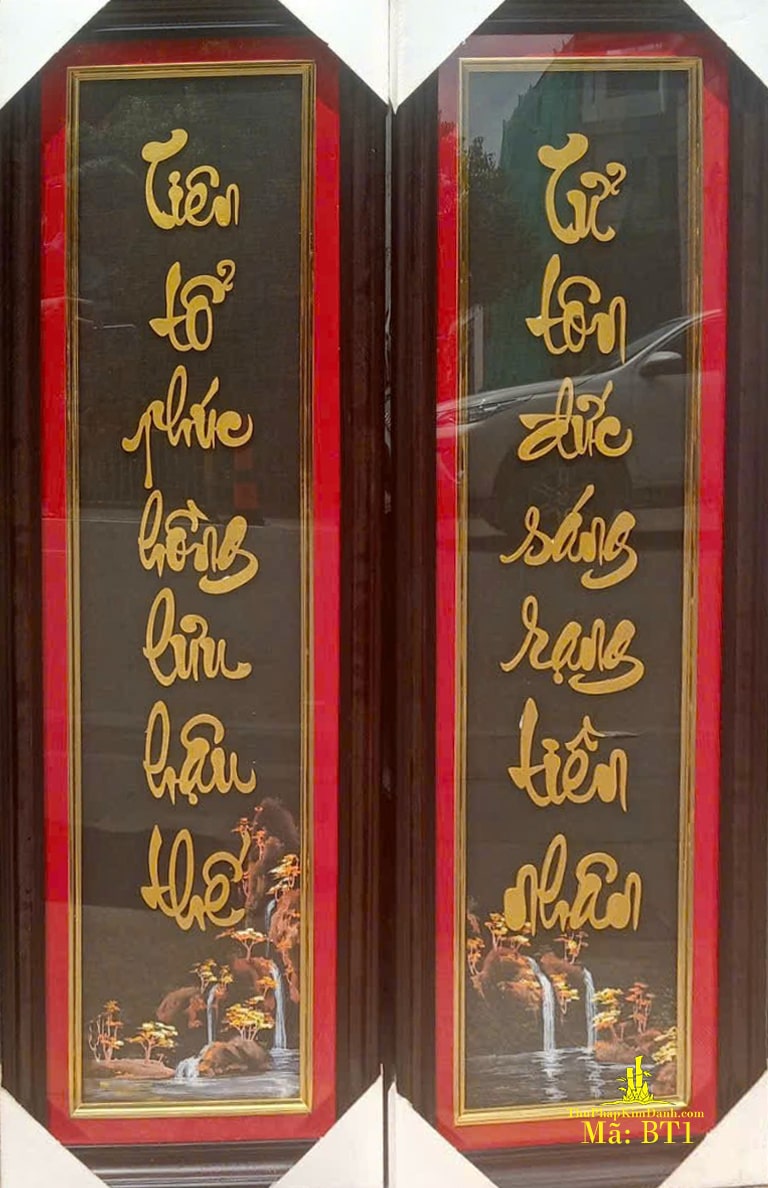 Tiên
tổ
phúc
hồng
lưu
hậu
thế
Tử
tôn
đức
sáng
rạng
tiên
nhân
ThuPhapKimDanh.com
Mã: BT1